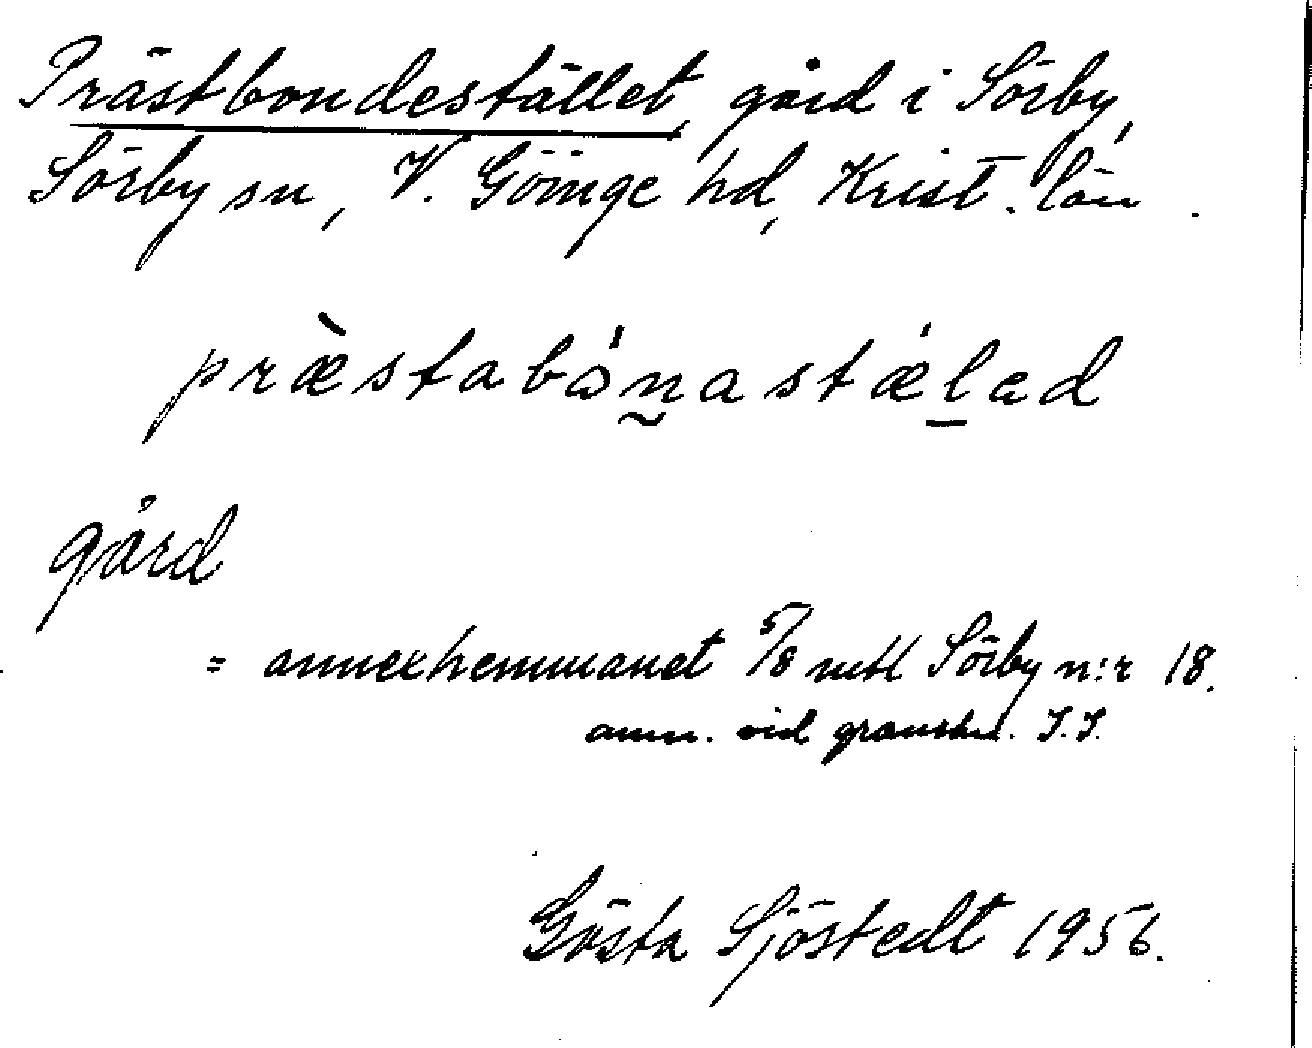 Prästbondestället, gård i Sörby,
Sörby sn, V. Göinge hd, Krist. län.
præ̀stabɷ́n̰astǽl̠ad
gård
= annexhemmanet 5/8 mtl Sörby n:r 18.
anm. vid granskn. S.S.
Gösta Sjöstedt 1956.